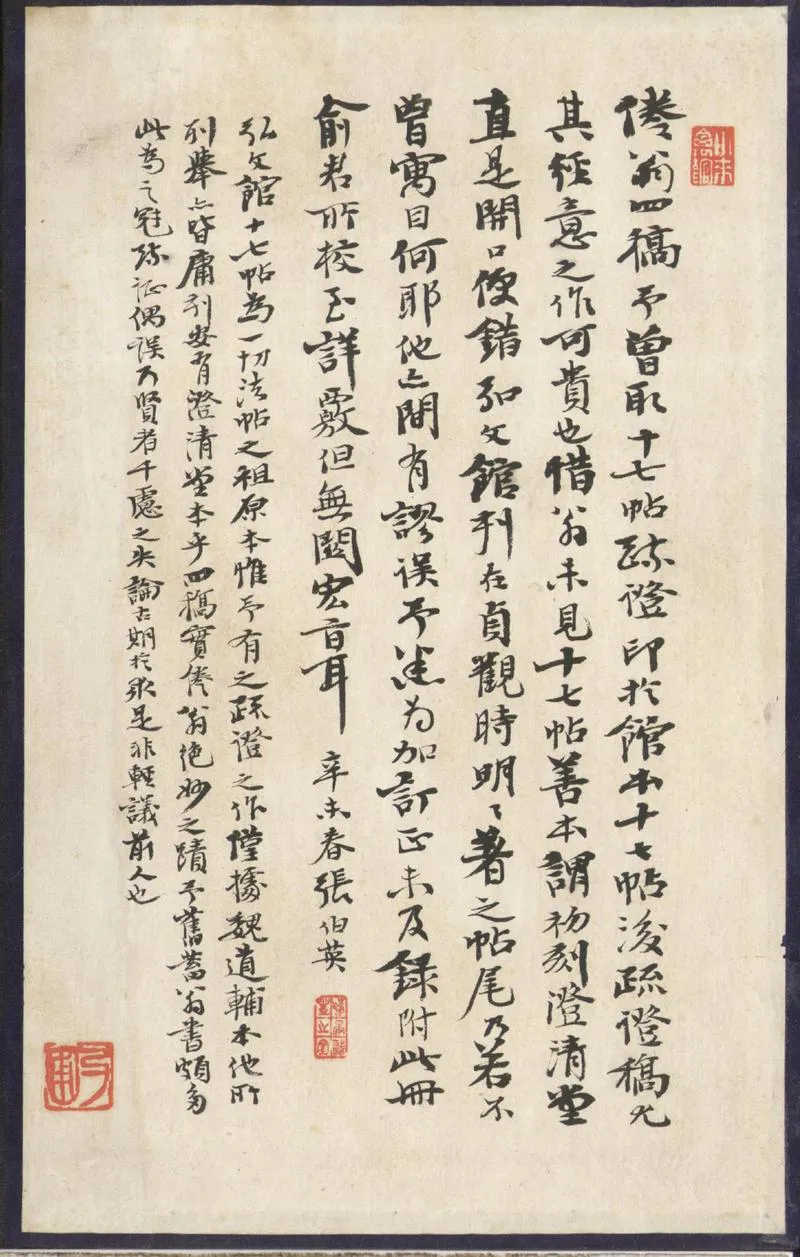 倦翁四稿予曾取十七帖疏證印於館本十七帖後疏證稿尤
其經意之作可貴也惜翁未見十七帖善本謂初刻澄清堂
直是開口便錯弘文館刊在貞觀時明明著之帖尾乃若不
曾寓目何耶他亦間有謬誤予悉為加訂正未及録附此冊
俞君所校至詳覈但無關宏旨耳
辛未春張伯英
弘文館十七帖為一切法帖之祖原本惟予有之疏證之作僅據魏道輔本他所
列舉亦皆庸刻安有澄清堂本乎四稿實倦翁絕妙之蹟予舊蓄翁書頗多
此為之冠疏證偶誤乃賢者千慮之失論古期於求是非輕議前人也